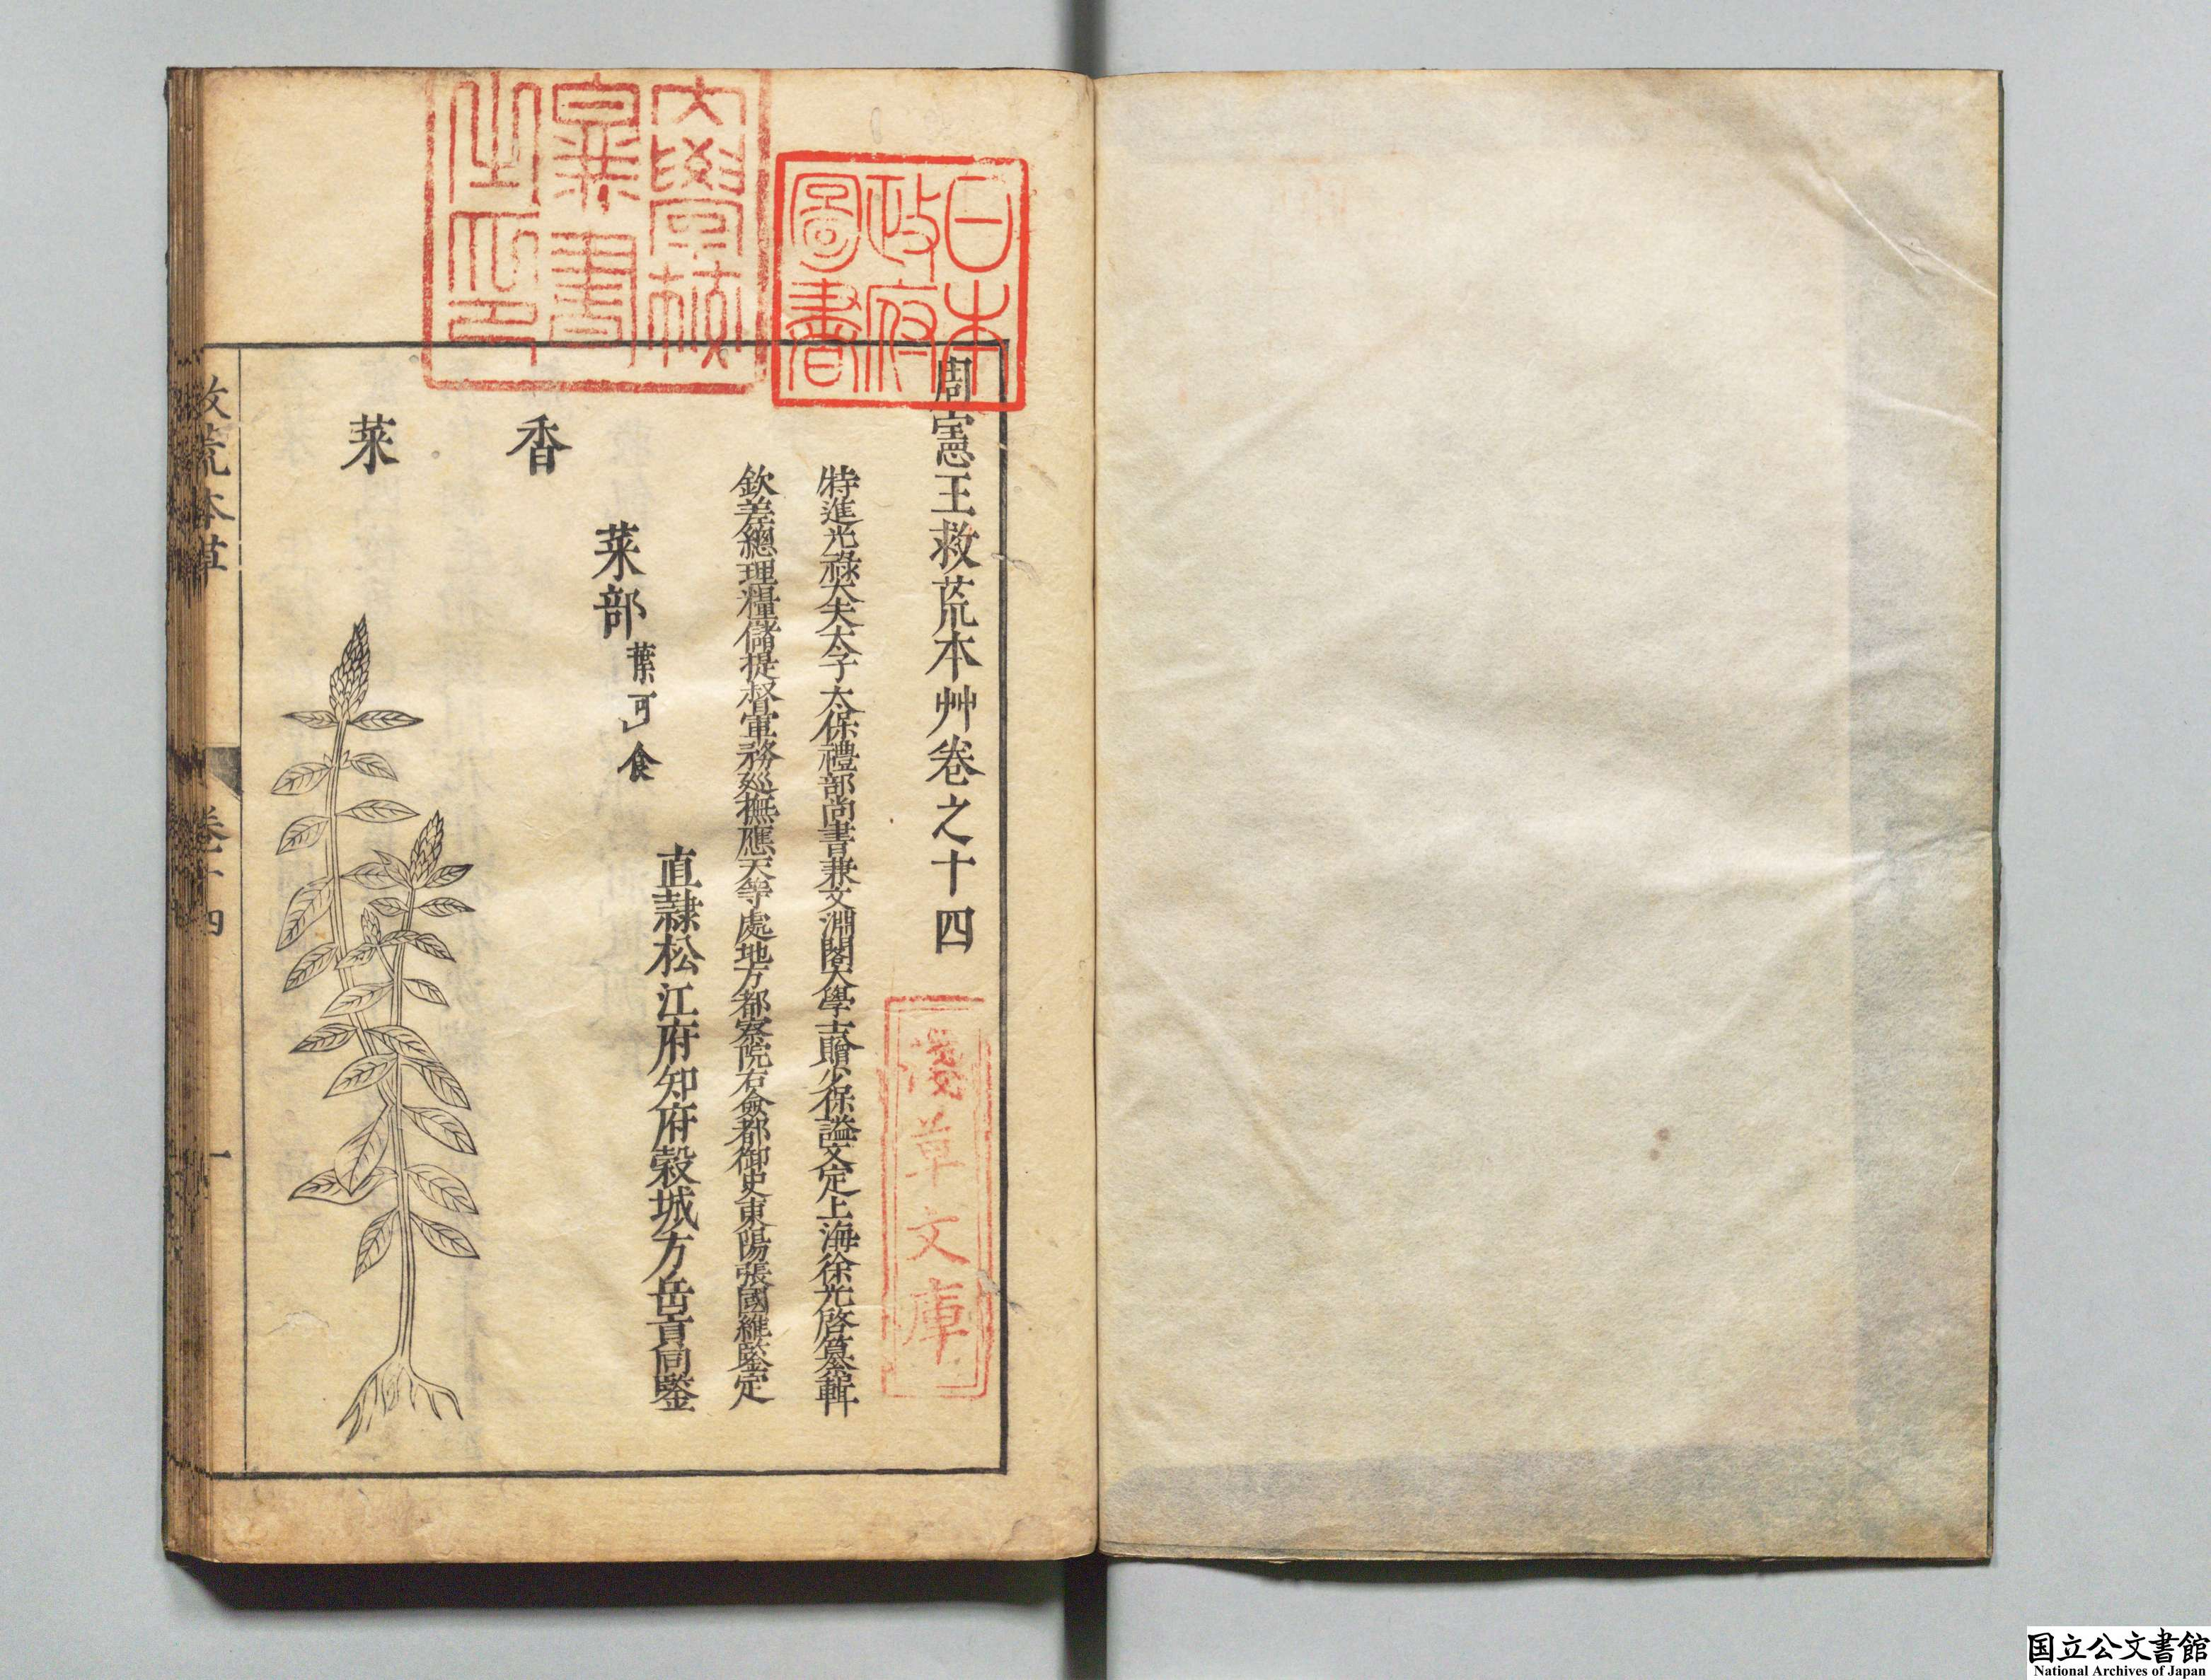 周憲王救荒本艸卷之十四
特進光祿大夫太子太保禮部尚書兼文淵閣大學士贈少保謚文定上海徐光啓纂輯
欽差總理糧儲提督軍務廵撫應天等處地方都察院右僉都御史東陽張國維鑒定
直隷松江府知府榖城方岳貢同鑒
菜部 葉可食
香
菜
救荒本草
卷十四
一
日本
政府
圖書
大學校
圖書
之印
淺草文庫
国立公文書館
National Archives of Japan